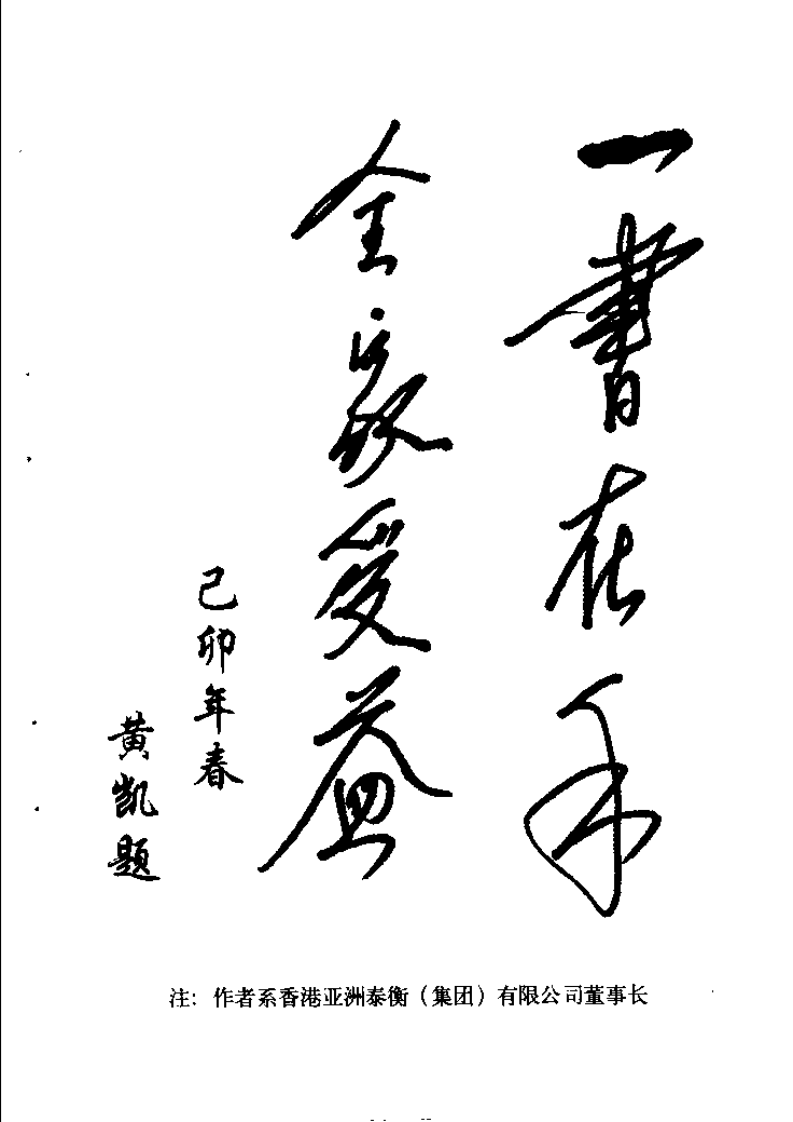 一書在手
全家受益
己卯年春
黄凯题
注：作者系香港亚洲泰衡（集团）有限公司董事长